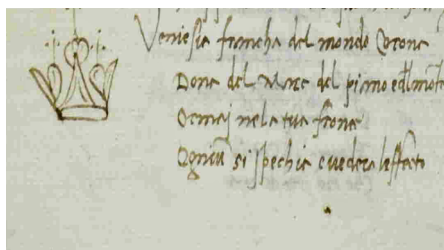 Veniesia francha del mondo Corona
Dona del mare del piano e del monte
Ormaj nela tua frone
Ogniuno si spechia e vedera leffecto